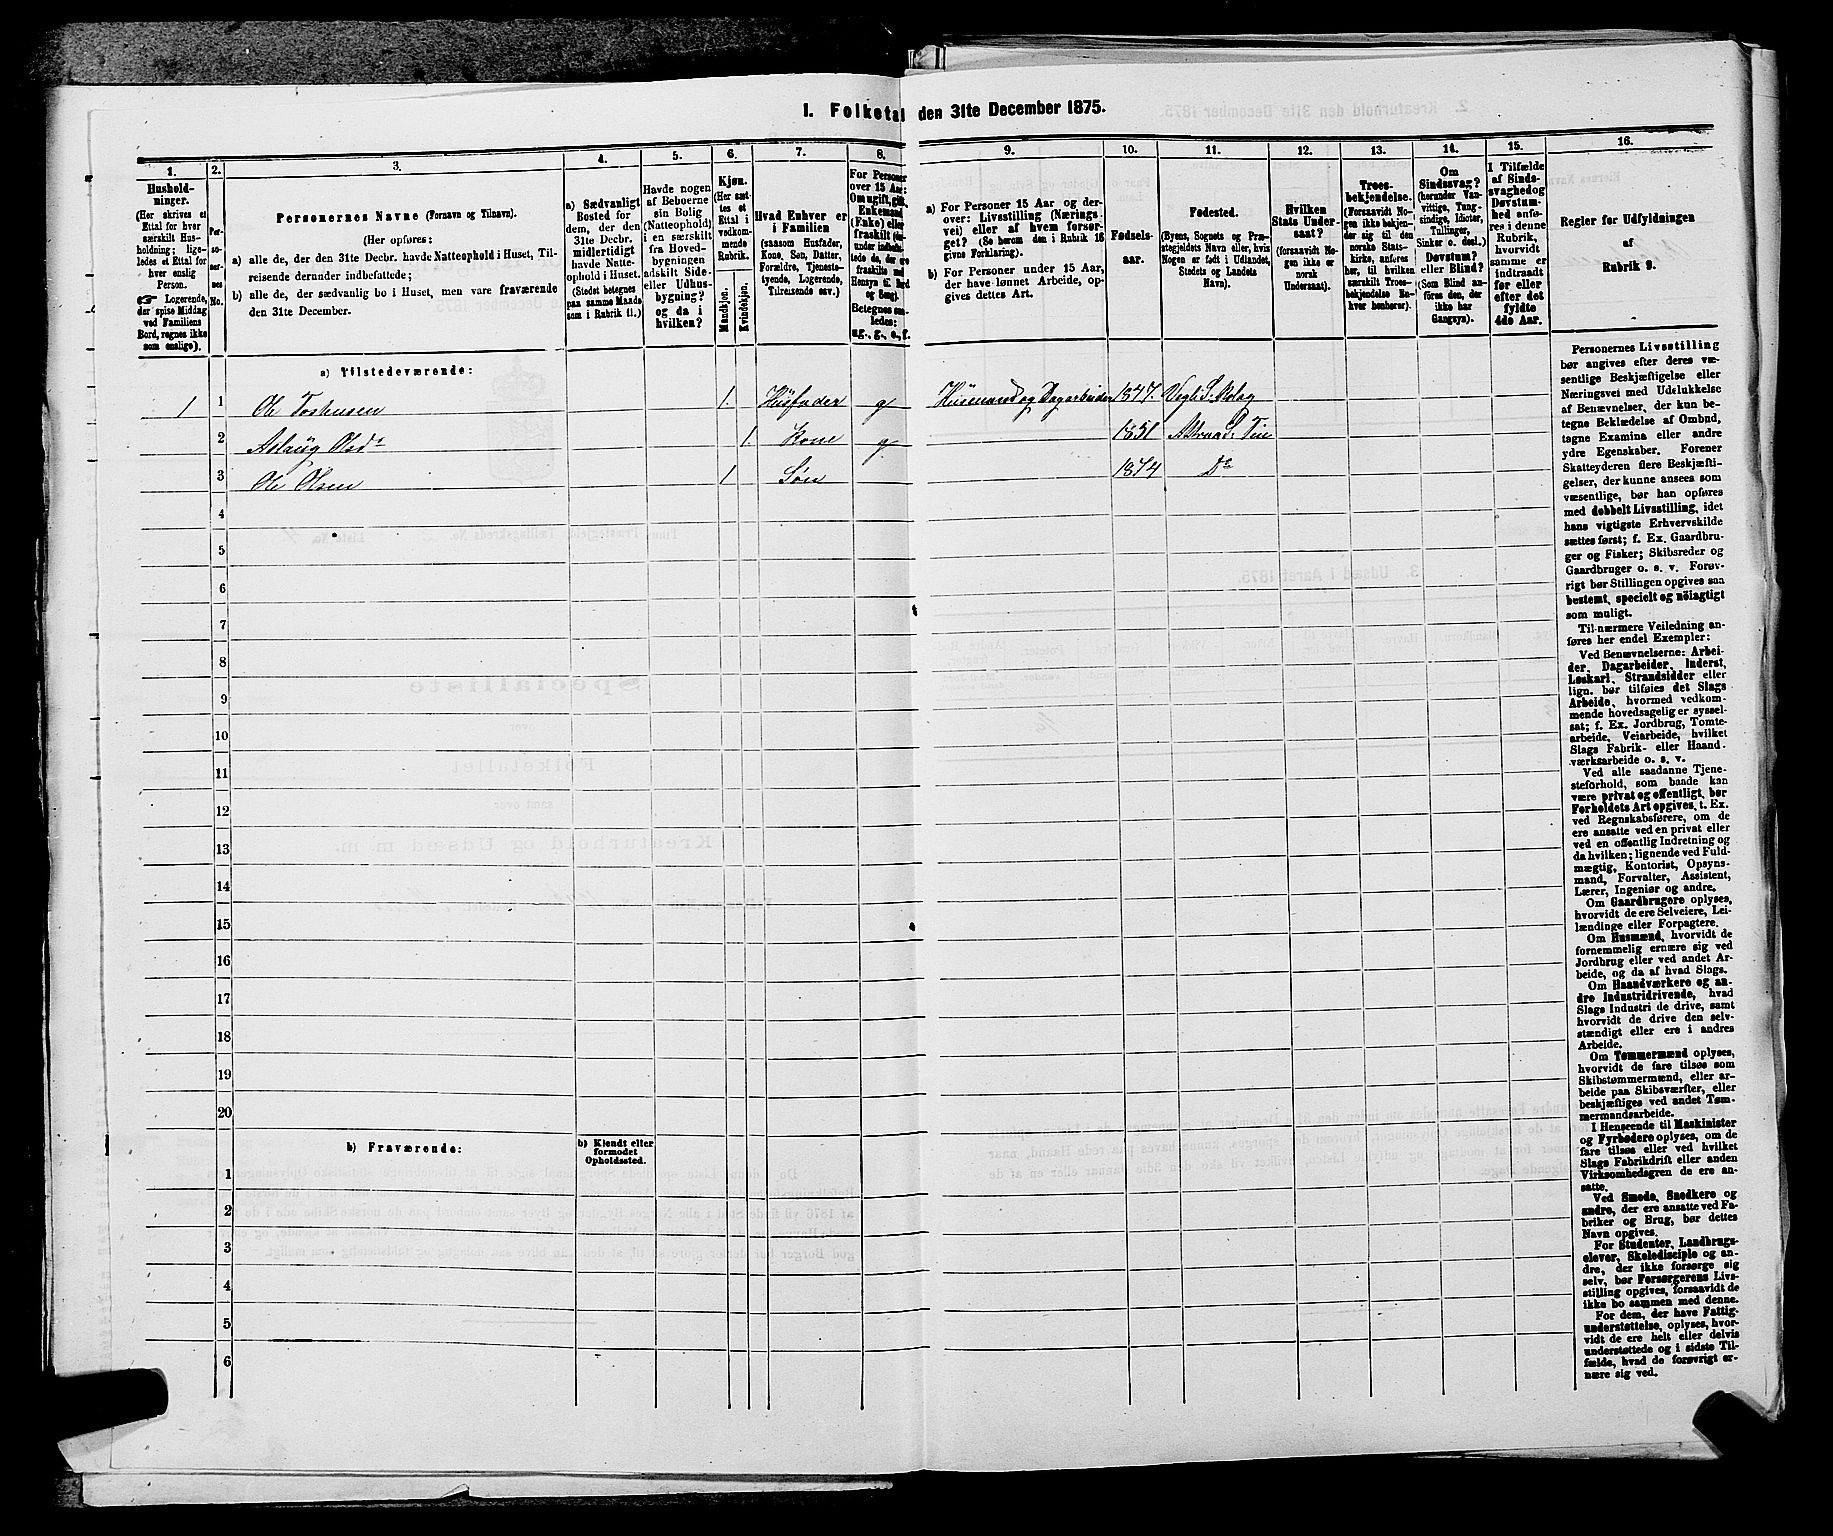 I. Folketal den 31te December 1875.
1.
Hushold-
ninger.
(Her skrives et
Ettal for hver
særskilt Hus-
holdning; lige-
ledes et Ettal for
hver enslig
Person.
☞ Logerende,
der spise Middag
ved Familiens
Bord, regnes ikke
som enslige).
2.
Per-
so-
ner-
nes
No.
3.
Personernes Navne (Fornavn og Tilnavn).
(Her opføres:
a) alle de, der den 31te Decbr. havde Natteophold i Huset, Til-
reisende derunder indbefattede;
b) alle de, der sædvanlig bo i Huset, men vare fraværende
den 31te December.
4.
a) Sædvanligt
Bosted for
dem, der den
31te Decbr.
midlertidigt
havde Natte-
ophold i Huset.
(Stedet betegnes
paa samme Maade
som i Rubrik 11.)
5.
Havde nogen
af Beboerne
sin Bolig
(Natteophold)
i en særskilt
fra Hoved-
bygningen
adskilt Side-
eller Udhus-
bygning?
og da i
hvilken?
6.
Kjøn.
(Her sæt-
tes et
Ettal i
vedkom-
mende
Rubrik.
Mandkjøn.
Kvindekjøn.
7.
Hvad Enhver er
i Familien
(saasom Husfader,
Kone, Søn, Datter,
Forældre, Tjeneste-
tyende, Logerende,
Tilreisende osv.)
8.
For Personer
over 15 Aar:
Om ugift, gift,
Enkemand
(Enke) eller
fraskilt
9.
a) For Personer 15 Aar og der-
over: Livsstilling (Nærings-
vei) eller af hvem forsør-
get? (Se herom den i Rubrik 16
givne Forklaring).
b) For Personer under 15 Aar,
der have lønnet Arbeide, op-
gives dettes Art.
10.
Fødsels-
aar.
11.
Fødested.
(Byens, Sognets og Præ-
stegjeldets Navn eller, hvis
Nogen er født i Udlandet,
Stedets og Landets
Navn).
12.
Hvilken
Stats Under-
saat?
(forsaavidt No-
gen ikke er
norsk
Undersaat).
13.
Troes-
bekjendelse.
(Forsaavidt No-
gen ikke bekjen-
der sig til den
norske Stats-
kirke, anføres
her, til hvilken
særskilt Troes-
bekjendelse En-
hver henhører).
14.
Om
Sindssvag?
(herunder Van-
vittige, Tung-
sindige, Idioter,
Tullinger,
Sinker o. desl.)
Døvstum?
eller Blind?
(Som Blind an-
føres den, der
ikke har
Gangsyn).
15.
I Tilfælde
af Sinds-
svaghed og
Døvstum-
hed anfø-
res i denne
Rubrik,
hvorvidt
samme er
indtraadt
før eller
efter det
fyldte
4de Aar.
16.
Regler for Udfyldningen
af
Rubrik 9.
a) Tilstedeværende:
1 1 Ole 1. Husfader g Husmand og Dagarbeider 1847.
2 Aslaug Olsdr 1 Kone g 1851
3 Ole Olsen 1 Søn 1874 Do
4
5
6
7
8
9
10
11
12
13
14
15
16
17
18
19
20
b) Fraværende:
b) Kjendt eller
formodet
Opholdssted.
1
2
3
4
5
6
Personernes Livsstilling
bør angives efter deres væ-
sentlige Beskjæftigelse eller
Næringsvei med Udelukkelse
af Benævnelser, der kun be-
tegne Beklædelse af Ombud,
tagne Examina eller andre
ydre Egenskaber. Forener
Skatteyderen flere Beskjæfti-
gelser, der kunne ansees som
væsentlige, bør han opføres
med dobbelt Livsstilling, idet
hans vigtigste Erhvervskilde
sættes først; f. Ex. Gaardbru-
ger og Fisker; Skibsreder og
Gaardbruger o. s. v. Forøv-
rigt bør Stillingen opgives saa
bestemt, specielt og nöiagtigt
som muligt.
Til nærmere Veiledning an-
føres her endel Exempler:
Ved Benævnelserne: Arbei-
der, Dagarbeider, Inderst,
Løskarl, Strandsidder eller
lign. bør tilføies det Slags
Arbeide, hvormed vedkom-
mende hovedsagelig er syssel-
sat; f. Ex. Jordbrug, Tomte-
arbeide, Veiarbeide, hvilket
Slags Fabrik- eller Haand-
værksarbeide o. s. v.
Ved alle saadanne Tjene-
steforhold, som baade kan
være privat og offentligt, bør
Forholdets Art opgives, t. Ex.
ved Regnskabsførere, om de
ere ansatte ved en privat eller
ved en offentlig Indretning og
da hvilken; lignende ved Fuld-
mægtig, Kontorist, Opsyns-
mand, Forvalter, Assistent,
Lærer, Ingeniør og andre.
Om Gaardbrugere oplyses,
hvorvidt de ere Selveiere, Lei-
lændinge eller Forpagtere.
Om Husmænd, hvorvidt de
fornemmelig ernære sig ved
Jordbrug eller ved andet Ar-
beide, og da af hvad Slags.
Om Haandværkere og an-
dre Industridrivende, hvad
Slags Industri de drive, samt
hvorvidt de drive den selv-
stændigt eller ere i andres
Arbeide.
Om Tømmermænd oplyses,
hvorvidt de fare tilsøs som
Skibstømmermænd, eller ar-
beide paa Skibsværfter, eller
beskjæftiges ved andet Tøm-
mermandsarbeide.
I Henseende til Maskinister
og Fyrbødere oplyses, om de
fare tilsøs eller ved hvilket
Slags Fabrikdrift eller anden
Virksomhedsgren de ere an-
satte.
Ved Smede, Snedkere og
andre, der ere ansatte ved Fa-
briker og Brug, bør dettes
Navn opgives.
For Studenter, Landbrugs-
elever, Skoledisciple og an-
dre, der ikke forsørge sig
selv, bør Forsørgerens Livs-
stilling opgives, forsaavidt de
ikke bo sammen med denne.
For dem, der have Fattig-
understøttelse, oplyses, hvor-
vidt de ere helt eller delvis
understøttede og i sidste Til-
fælde, hvad de forøvrigt er-
nære sig ved.